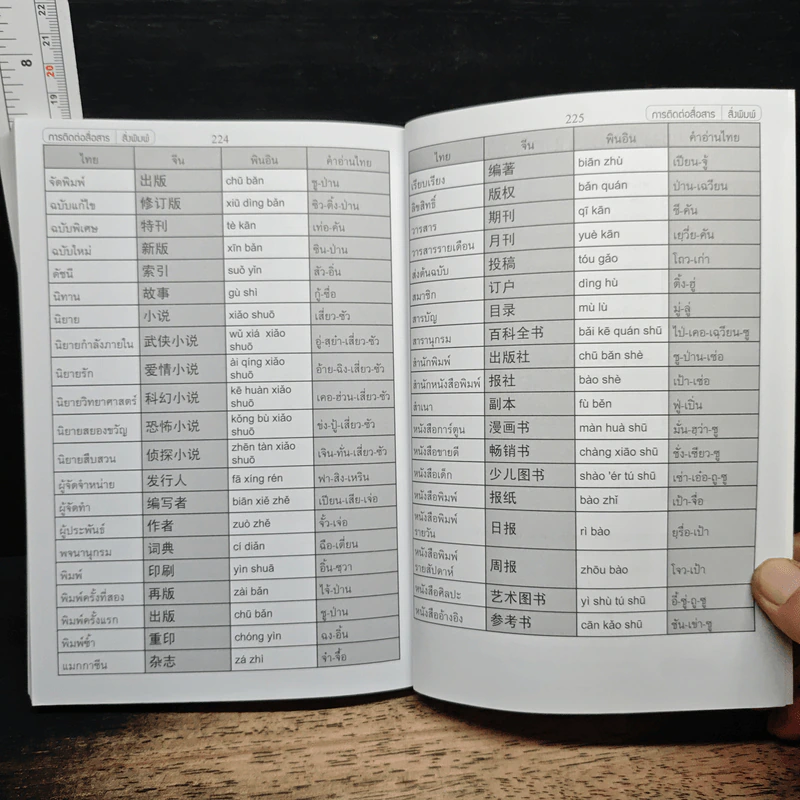 8
22
21
20
19
การติดต่อสื่อสาร สิ่งพิมพ์ 224
ไทย จีน พินอิน คำอ่านไทย
จัดพิมพ์ 出版 chū bǎn ชู-ป่าน
ฉบับแก้ไข 修订版 xiū dìng bǎn ซิว-ติ้ง-ป่าน
ฉบับพิเศษ 特刊 tè kān เท่อ-คัน
ฉบับใหม่ 新版 xīn bǎn ซิน-ป่าน
ดัชนี 索引 suǒ yǐn สัว-อิ่น
นิทาน 故事 gù shì กู้-ซื่อ
นิยาย 小说 xiǎo shuō เสี่ยว-ซัว
นิยายกำลังภายใน 武侠小说 wǔ xiá xiǎo shuō อู่-สยา-เสี่ยว-ซัว
นิยายรัก 爱情小说 ài qíng xiǎo shuō อ้าย-ฉิง-เสี่ยว-ซัว
นิยายวิทยาศาสตร์ 科幻小说 kē huàn xiǎo shuō เคอ-ฮ่วน-เสี่ยว-ซัว
นิยายสยองขวัญ 恐怖小说 kǒng bù xiǎo shuō ข่ง-ปู้-เสี่ยว-ซัว
นิยายสืบสวน 侦探小说 zhēn tàn xiǎo shuō เจิน-ทั่น-เสี่ยว-ซัว
ผู้จัดจำหน่าย 发行人 fā xíng rén ฟา-สิง-เหริน
ผู้จัดทำ 编写者 biān xiě zhě เปียน-เสีย-เจ่อ
ผู้ประพันธ์ 作者 zuò zhě จั้ว-เจ่อ
พจนานุกรม 词典 cí diǎn ฉือ-เตี่ยน
พิมพ์ 印刷 yìn shuā อิ้น-ซวา
พิมพ์ครั้งที่สอง 再版 zài bǎn ไจ้-ป่าน
พิมพ์ครั้งแรก 出版 chū bǎn ชู-ป่าน
พิมพ์ซ้ำ 重印 chóng yìn ฉง-อิ้น
แมกกาซีน 杂志 zá zhì จ๋า-จื้อ
225 การติดต่อสื่อสาร สิ่งพิมพ์
ไทย จีน พินอิน คำอ่านไทย
เรียบเรียง 编著 biān zhù เปียน-จู้
ลิขสิทธิ์ 版权 bǎn quán ป่าน-เฉวียน
วารสาร 期刊 qī kān ชี-คัน
วารสารรายเดือน 月刊 yuè kān เยวี่ย-คัน
ส่งต้นฉบับ 投稿 tóu gǎo โถว-เก่า
สมาชิก 订户 dìng hù ติ้ง-ฮู่
สารบัญ 目录 mù lù มู่-ลู่
สารานุกรม 百科全书 bǎi kē quán shū ไป่-เคอ-เฉวียน-ซู
สำนักพิมพ์ 出版社 chū bǎn shè ชู-ป่าน-เซ่อ
สำนักหนังสือพิมพ์ 报社 bào shè เป้า-เซ่อ
สำเนา 副本 fù běn ฟู่-เปิ่น
หนังสือการ์ตูน 漫画书 màn huà shū มั่น-ฮว่า-ซู
หนังสือขายดี 畅销书 chàng xiāo shū ชั่ง-เซียว-ซู
หนังสือเด็ก 少儿图书 shào 'ér tú shū เซ่า-เอ๋อ-ถู-ซู
หนังสือพิมพ์ 报纸 bào zhǐ เป้า-จื่อ
หนังสือพิมพ์รายวัน 日报 rì bào ยรื่อ-เป้า
หนังสือพิมพ์รายสัปดาห์ 周报 zhōu bào โจว-เป้า
หนังสือศิลปะ 艺术图书 yì shù tú shū อี้-ซู่-ถู-ซู
หนังสืออ้างอิง 参考书 cān kǎo shū ชัน-เข่า-ซู